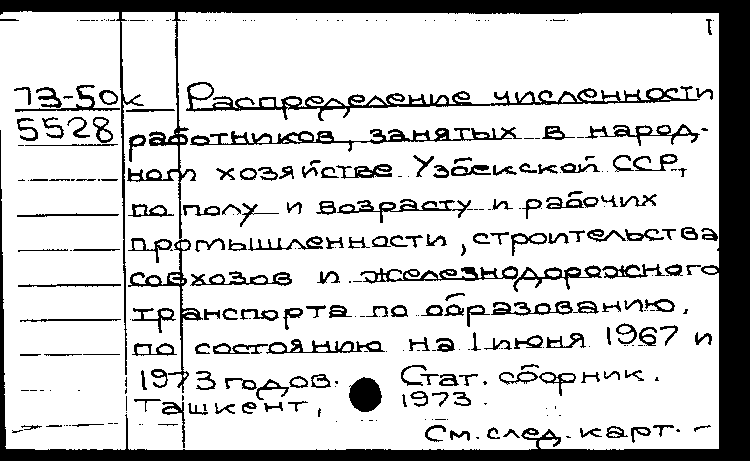 I
73-50к Распределение численности
5528 работников, занятых в народ-
ном хозяйстве Узбекской ССР,
по полу и возрасту и рабочих
промышленности, строительства
совхозов и железнодорожного
транспорта по образованию,
по состоянию на 1 июня 1967 и
1973 годов. Стат. сборник.
Ташкент, 1973.
См. след. карт. -